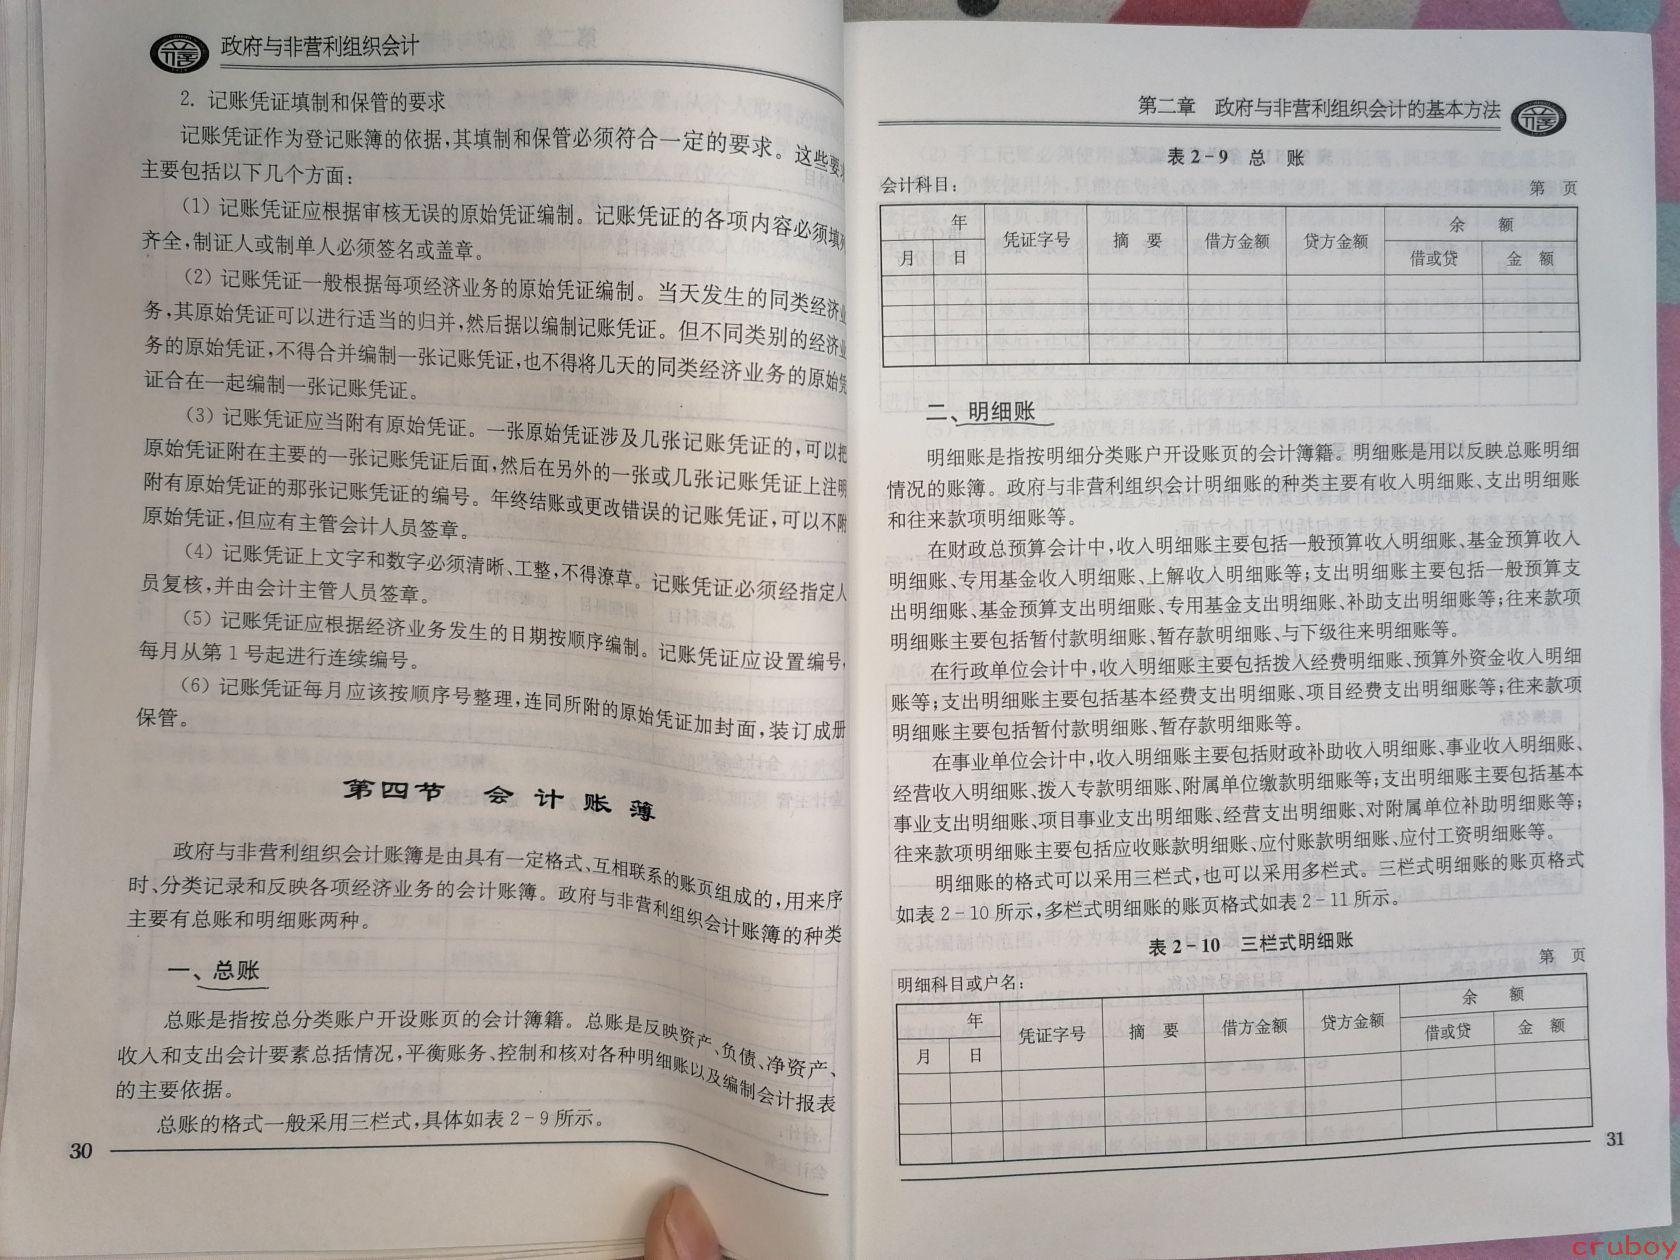 政府与非营利组织会计
2. 记账凭证填制和保管的要求
记账凭证作为登记账簿的依据,其填制和保管必须符合一定的要求。这些要求
主要包括以下几个方面:
(1) 记账凭证应根据审核无误的原始凭证编制。记账凭证的各项内容必须填列
齐全,制证人或制单人必须签名或盖章。
(2) 记账凭证一般根据每项经济业务的原始凭证编制。当天发生的同类经济业
务,其原始凭证可以进行适当的归并,然后据以编制记账凭证。但不同类别的经济业
务的原始凭证,不得合并编制一张记账凭证,也不得将几天的同类经济业务的原始凭
证合在一起编制一张记账凭证。
(3) 记账凭证应当附有原始凭证。一张原始凭证涉及几张记账凭证的,可以把
原始凭证附在主要的一张记账凭证后面,然后在另外的一张或几张记账凭证上注明
附有原始凭证的那张记账凭证的编号。年终结账或更改错误的记账凭证,可以不附
原始凭证,但应有主管会计人员签章。
(4) 记账凭证上文字和数字必须清晰、工整,不得潦草。记账凭证必须经指定人
员复核,并由会计主管人员签章。
(5) 记账凭证应根据经济业务发生的日期按顺序编制。记账凭证应设置编号,
每月从第1号起进行连续编号。
(6) 记账凭证每月应该按顺序号整理,连同所附的原始凭证加封面,装订成册
保管。
第四节 会计账簿
政府与非营利组织会计账簿是由具有一定格式、互相联系的账页组成的,用来序
时、分类记录和反映各项经济业务的会计账簿。政府与非营利组织会计账簿的种类
主要有总账和明细账两种。
一、总账
总账是指按总分类账户开设账页的会计簿籍。总账是反映资产、负债、净资产、
收入和支出会计要素总括情况,平衡账务、控制和核对各种明细账以及编制会计报表
的主要依据。
总账的格式一般采用三栏式,具体如表2-9所示。
30
第二章 政府与非营利组织会计的基本方法
表2-9 总 账
会计科目: 第 页
年 凭证字号 摘 要 借方金额 贷方金额 余 额
月 日 借或贷 金 额
二、明细账
明细账是指按明细分类账户开设账页的会计簿籍。明细账是用以反映总账明细
情况的账簿。政府与非营利组织会计明细账的种类主要有收入明细账、支出明细账
和往来款项明细账等。
在财政总预算会计中,收入明细账主要包括一般预算收入明细账、基金预算收入
明细账、专用基金收入明细账、上解收入明细账等;支出明细账主要包括一般预算支
出明细账、基金预算支出明细账、专用基金支出明细账、补助支出明细账等;往来款项
明细账主要包括暂付款明细账、暂存款明细账、与下级往来明细账等。
在行政单位会计中,收入明细账主要包括拨入经费明细账、预算外资金收入明细
账等;支出明细账主要包括基本经费支出明细账、项目经费支出明细账等;往来款项
明细账主要包括暂付款明细账、暂存款明细账等。
在事业单位会计中,收入明细账主要包括财政补助收入明细账、事业收入明细账、
经营收入明细账、拨入专款明细账、附属单位缴款明细账等;支出明细账主要包括基本
事业支出明细账、项目事业支出明细账、经营支出明细账、对附属单位补助明细账等;
往来款项明细账主要包括应收账款明细账、应付账款明细账、应付工资明细账等。
明细账的格式可以采用三栏式,也可以采用多栏式。三栏式明细账的账页格式
如表2-10所示,多栏式明细账的账页格式如表2-11所示。
表2-10 三栏式明细账
明细科目或户名: 第 页
年 凭证字号 摘 要 借方金额 贷方金额 余 额
月 日 借或贷 金 额
31
cruboy